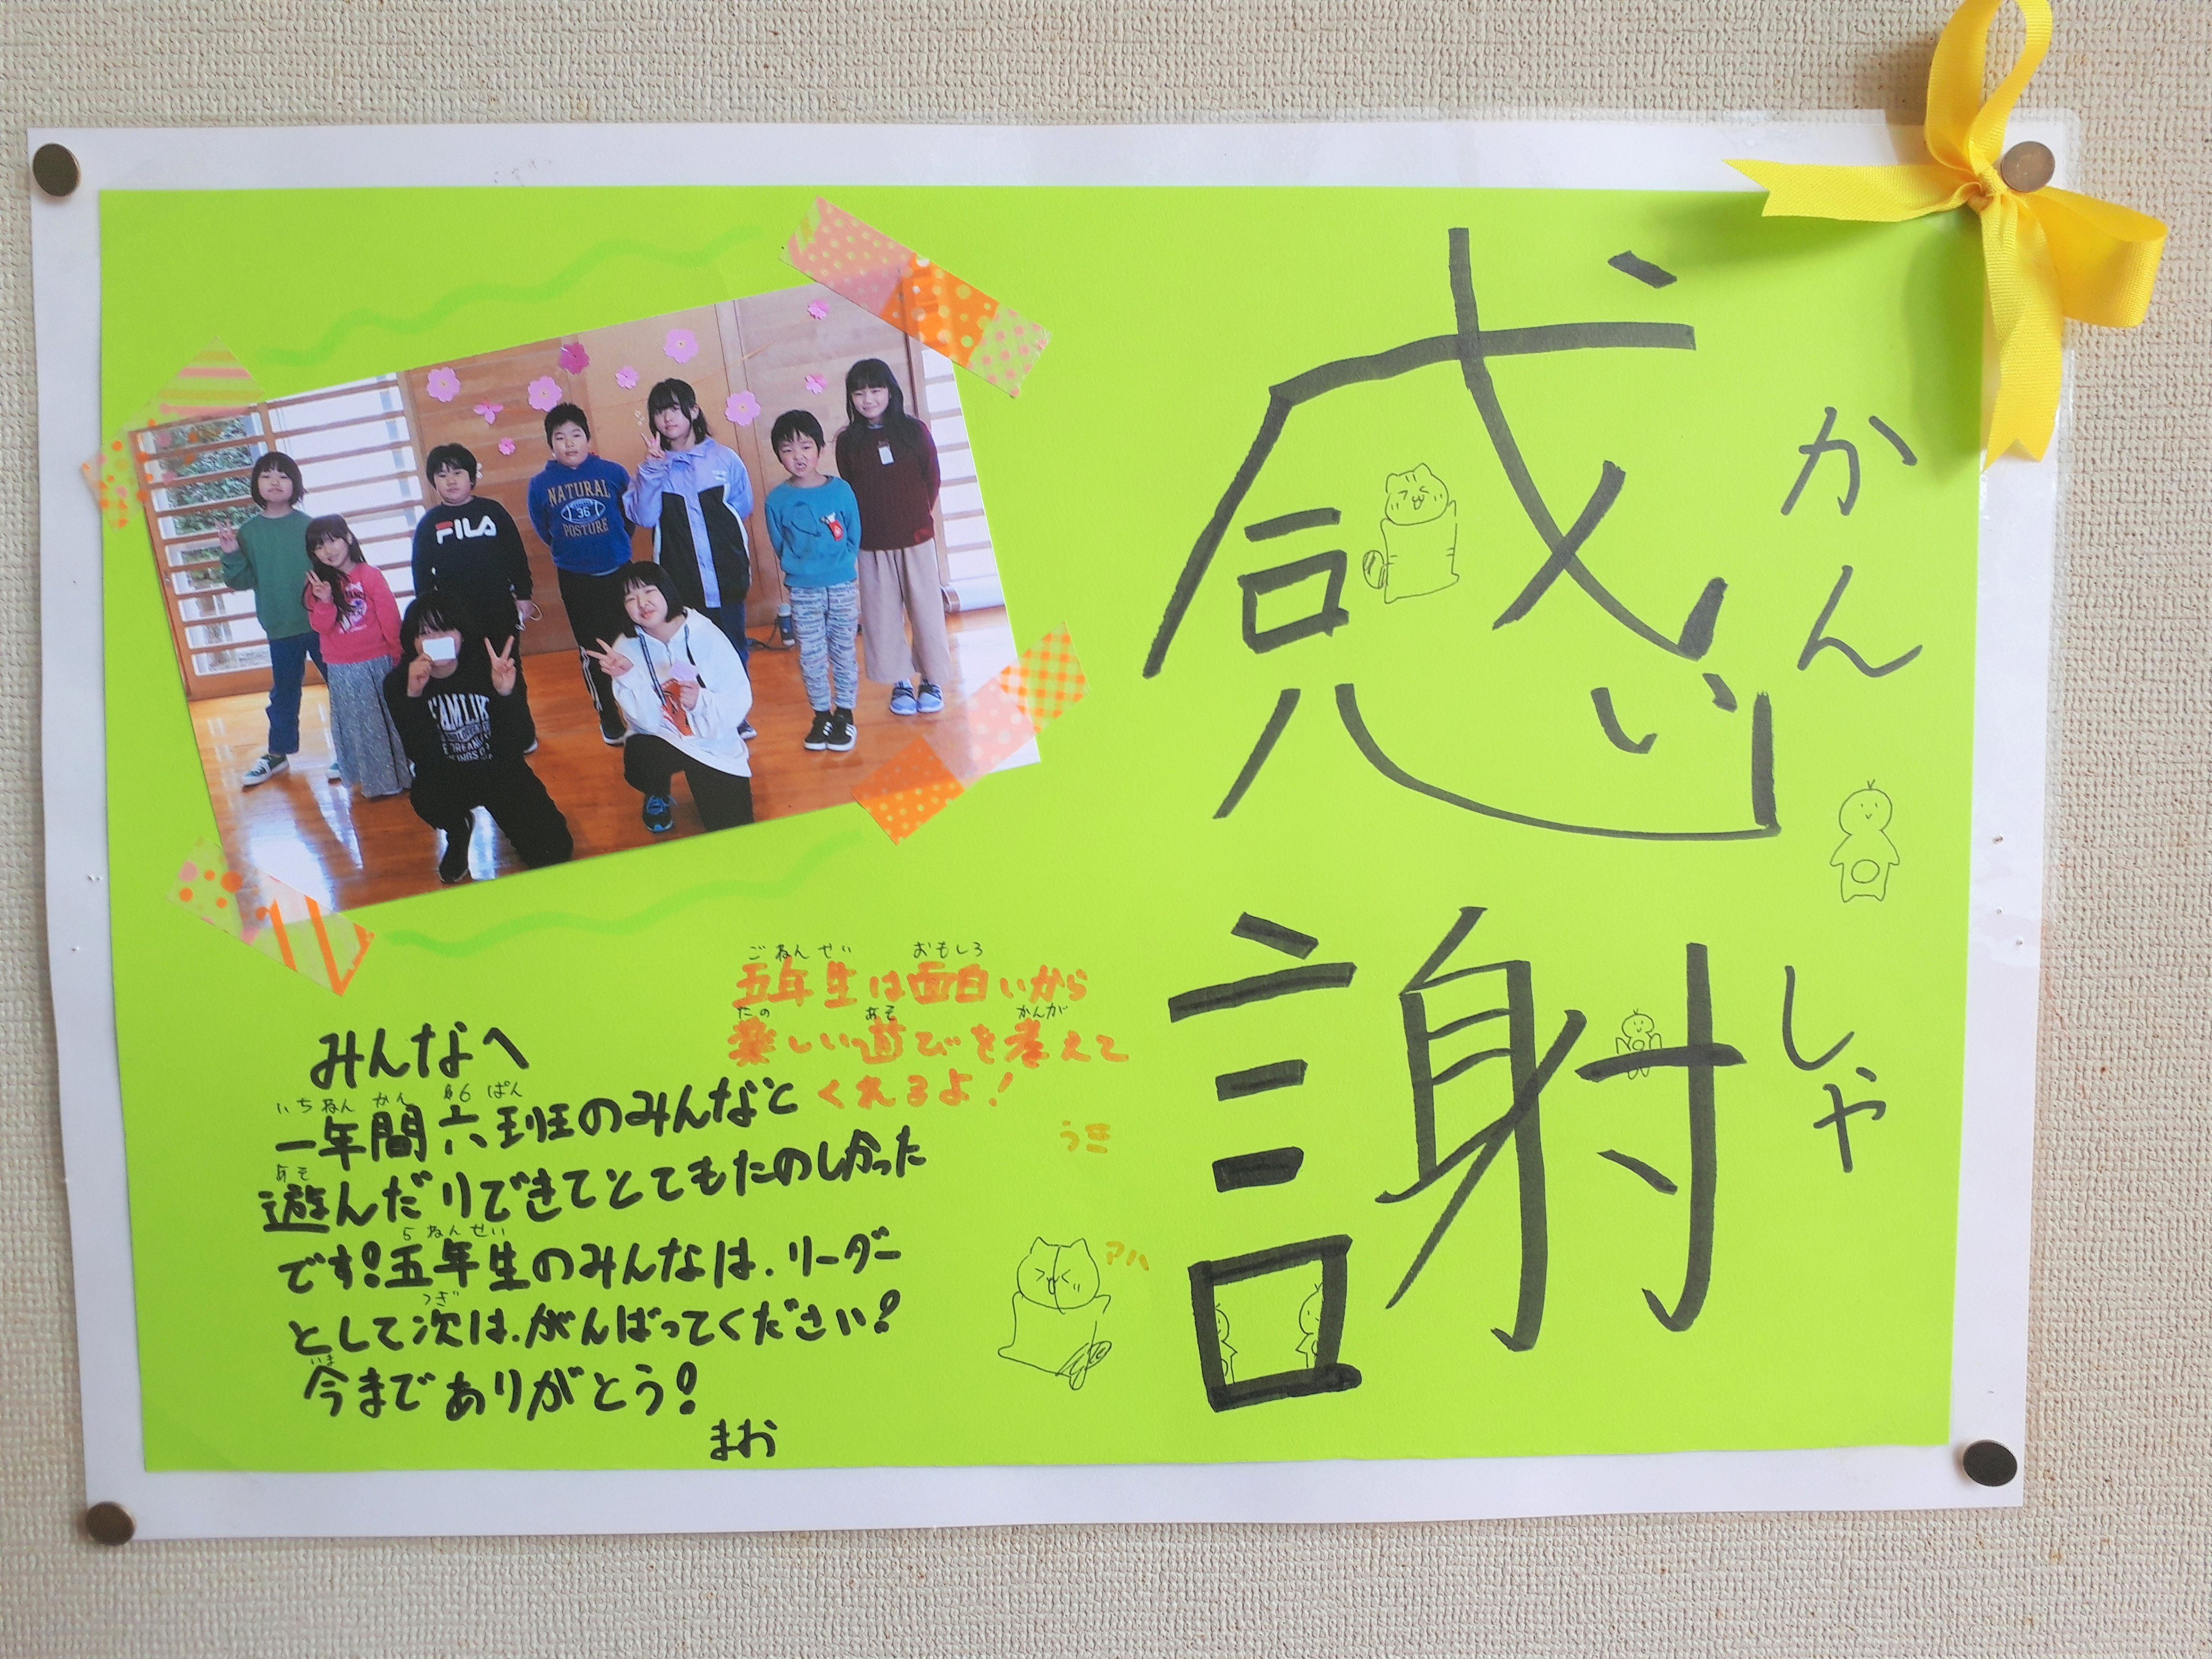 感謝
かんしゃ
NATURAL
36
POSTURE
FILA
ごねんせい おもしろ
五年生は面白いから
たの あそ かんが
楽しい遊びを考えて
くれるよ!
うき
みんなへ
いちねんかん ろくぱん
一年間六班のみんなと
あそ
遊んだりできてとてもたのしかった
5ねんせい
です!五年生のみんなは、リーダー
つぎ
として次は、がんばってください!
いま
今までありがとう!
まお
アハ